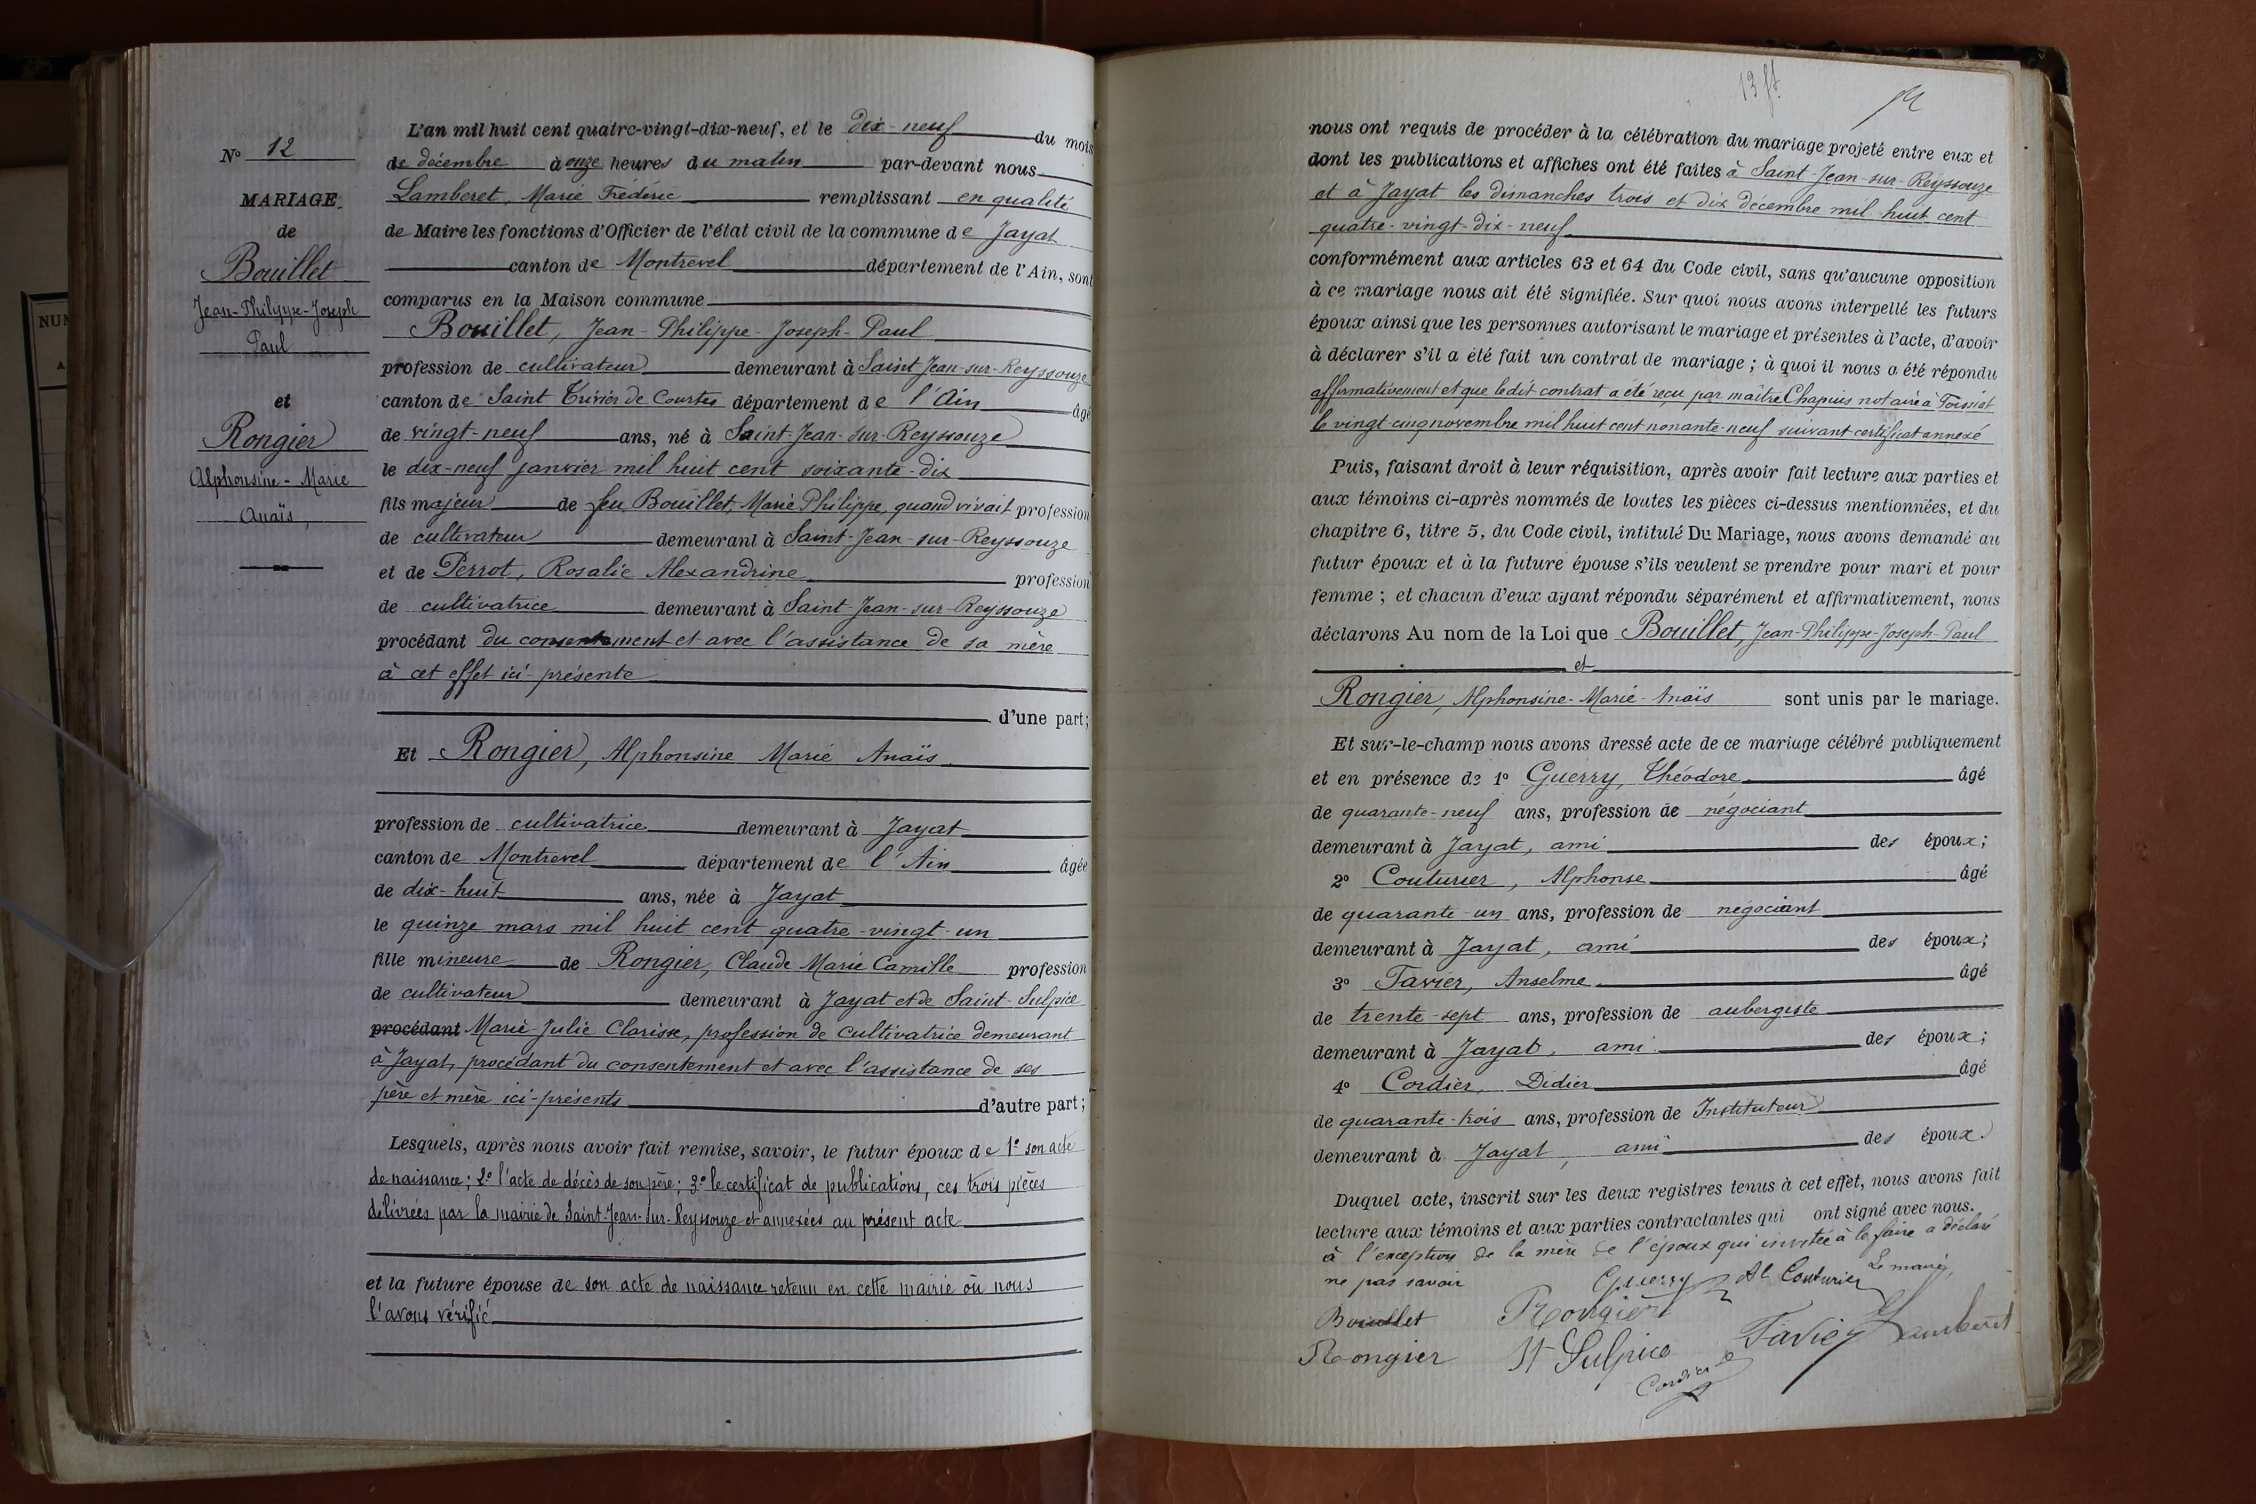 N° 12
MARIAGE
de
Bouillet
Jean-Philippe-Joseph
Paul
et
Rongier
Alphonsine-Marie
Anaïs,
L'an mil huit cent quatre-vingt-dix-neuf, et le dix-neuf du mois
de décembre à onze heures du matin par-devant nous
Lamberet, Marie Frédéric remplissant en qualité
de Maire les fonctions d'Officier de l'état civil de la commune de Jayat
canton de Montrevel département de l'Ain, sont
comparus en la Maison commune
Bouillet, Jean-Philippe-Joseph-Paul
profession de cultivateur demeurant à Saint Jean-sur-Reyssouze
canton de Saint Trivier de Courtes département de l'Ain âgé
de vingt-neuf ans, né à Saint-Jean-sur-Reyssouze
le dix-neuf janvier mil huit cent soixante-dix
fils majeur de feu Bouillet, Marie Philippe, quand vivait profession
de cultivateur demeurant à Saint-Jean-sur-Reyssouze
et de Perrot, Rosalie Alexandrine profession
de cultivatrice demeurant à Saint-Jean-sur-Reyssouze
procédant du consentement et avec l'assistance de sa mère
à cet effet ici-présente
d'une part;
Et Rongier, Alphonsine Marie Anaïs
profession de cultivatrice demeurant à Jayat
canton de Montrevel département de l'Ain âgée
de dix-huit ans, née à Jayat
le quinze mars mil huit cent quatre-vingt-un
fille mineure de Rongier, Claude Marie Camille profession
de cultivateur demeurant à Jayat et de Saint-Sulpice
procédant Marie-Julie Clarisse, profession de cultivatrice demeurant
à Jayat, procédant du consentement et avec l'assistance de ses
père et mère ici-présents d'autre part;
Lesquels, après nous avoir fait remise, savoir, le futur époux de 1° son acte
de naissance; 2° l'acte de décès de son père; 3° le certificat de publications, ces trois pièces
délivrées par la mairie de Saint-Jean-sur-Reyssouze et annexées au présent acte
et la future épouse de son acte de naissance retenu en cette mairie où nous
l'avons vérifié
nous ont requis de procéder à la célébration du mariage projeté entre eux et
dont les publications et affiches ont été faites à Saint-Jean-sur-Reyssouze
et à Jayat les dimanches trois et dix décembre mil huit cent
quatre-vingt-dix-neuf
conformément aux articles 63 et 64 du Code civil, sans qu'aucune opposition
à ce mariage nous ait été signifiée. Sur quoi nous avons interpellé les futurs
époux ainsi que les personnes autorisant le mariage et présentes à l'acte, d'avoir
à déclarer s'il a été fait un contrat de mariage; à quoi il nous a été répondu
affirmativement et que ledit contrat a été reçu par maître Chapuis notaire à Foissiat
le vingt-cinq novembre mil huit cent nonante-neuf suivant certificat annexé
Puis, faisant droit à leur réquisition, après avoir fait lecture aux parties et
aux témoins ci-après nommés de toutes les pièces ci-dessus mentionnées, et du
chapitre 6, titre 5, du Code civil, intitulé Du Mariage, nous avons demandé au
futur époux et à la future épouse s'ils veulent se prendre pour mari et pour
femme; et chacun d'eux ayant répondu séparément et affirmativement, nous
déclarons Au nom de la Loi que Bouillet, Jean-Philippe-Joseph-Paul
et
Rongier, Alphonsine-Marie-Anaïs sont unis par le mariage.
Et sur-le-champ nous avons dressé acte de ce mariage célébré publiquement
et en présence de 1° Guerry, Théodore âgé
de quarante-neuf ans, profession de négociant
demeurant à Jayat, ami des époux;
2° Couturier, Alphonse âgé
de quarante-un ans, profession de négociant
demeurant à Jayat, ami des époux;
3° Favier, Anselme âgé
de trente-sept ans, profession de aubergiste
demeurant à Jayat, ami des époux;
4° Cordier, Didier âgé
de quarante-trois ans, profession de Instituteur
demeurant à Jayat, ami des époux.
Duquel acte, inscrit sur les deux registres tenus à cet effet, nous avons fait
lecture aux témoins et aux parties contractantes qui ont signé avec nous.
à l'exception de la mère de l'époux qui invitée à le faire a déclaré
ne pas savoir
Guerry Al Couturier Le maire,
Bouillet Rongier Lamberet
Rongier St Sulpice Favier
Cordier